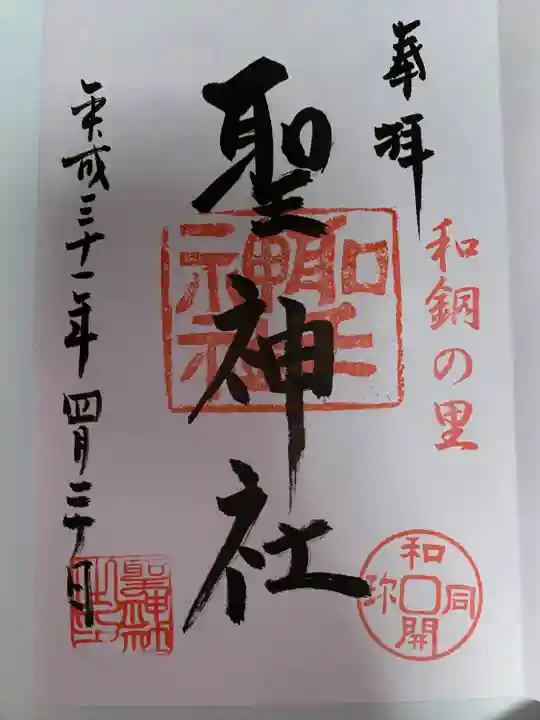 奉拝
和銅の里
和同開珎
聖神社
聖神社
平成三十一年四月二十日